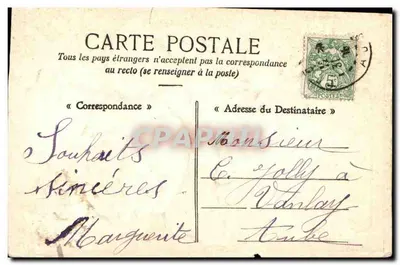 CARTE POSTALE
Tous les pays étrangers n'acceptent pas la correspondance
au recto (se renseigner à la poste)
« Correspondance »
« Adresse du Destinataire »
Souhaits
sincéres
Marguerite
Monsieur
C. Jolly à
Vanlay
Aube
5